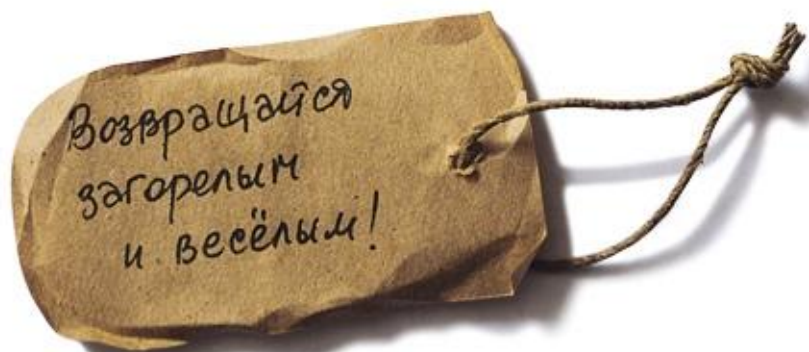 Возвращайся
загорелым
и весёлым!